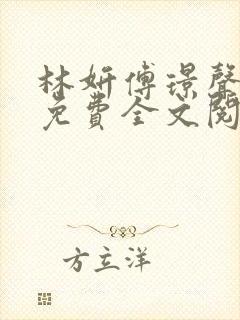 林妍傅璟聲
免費全文閱
方立洋